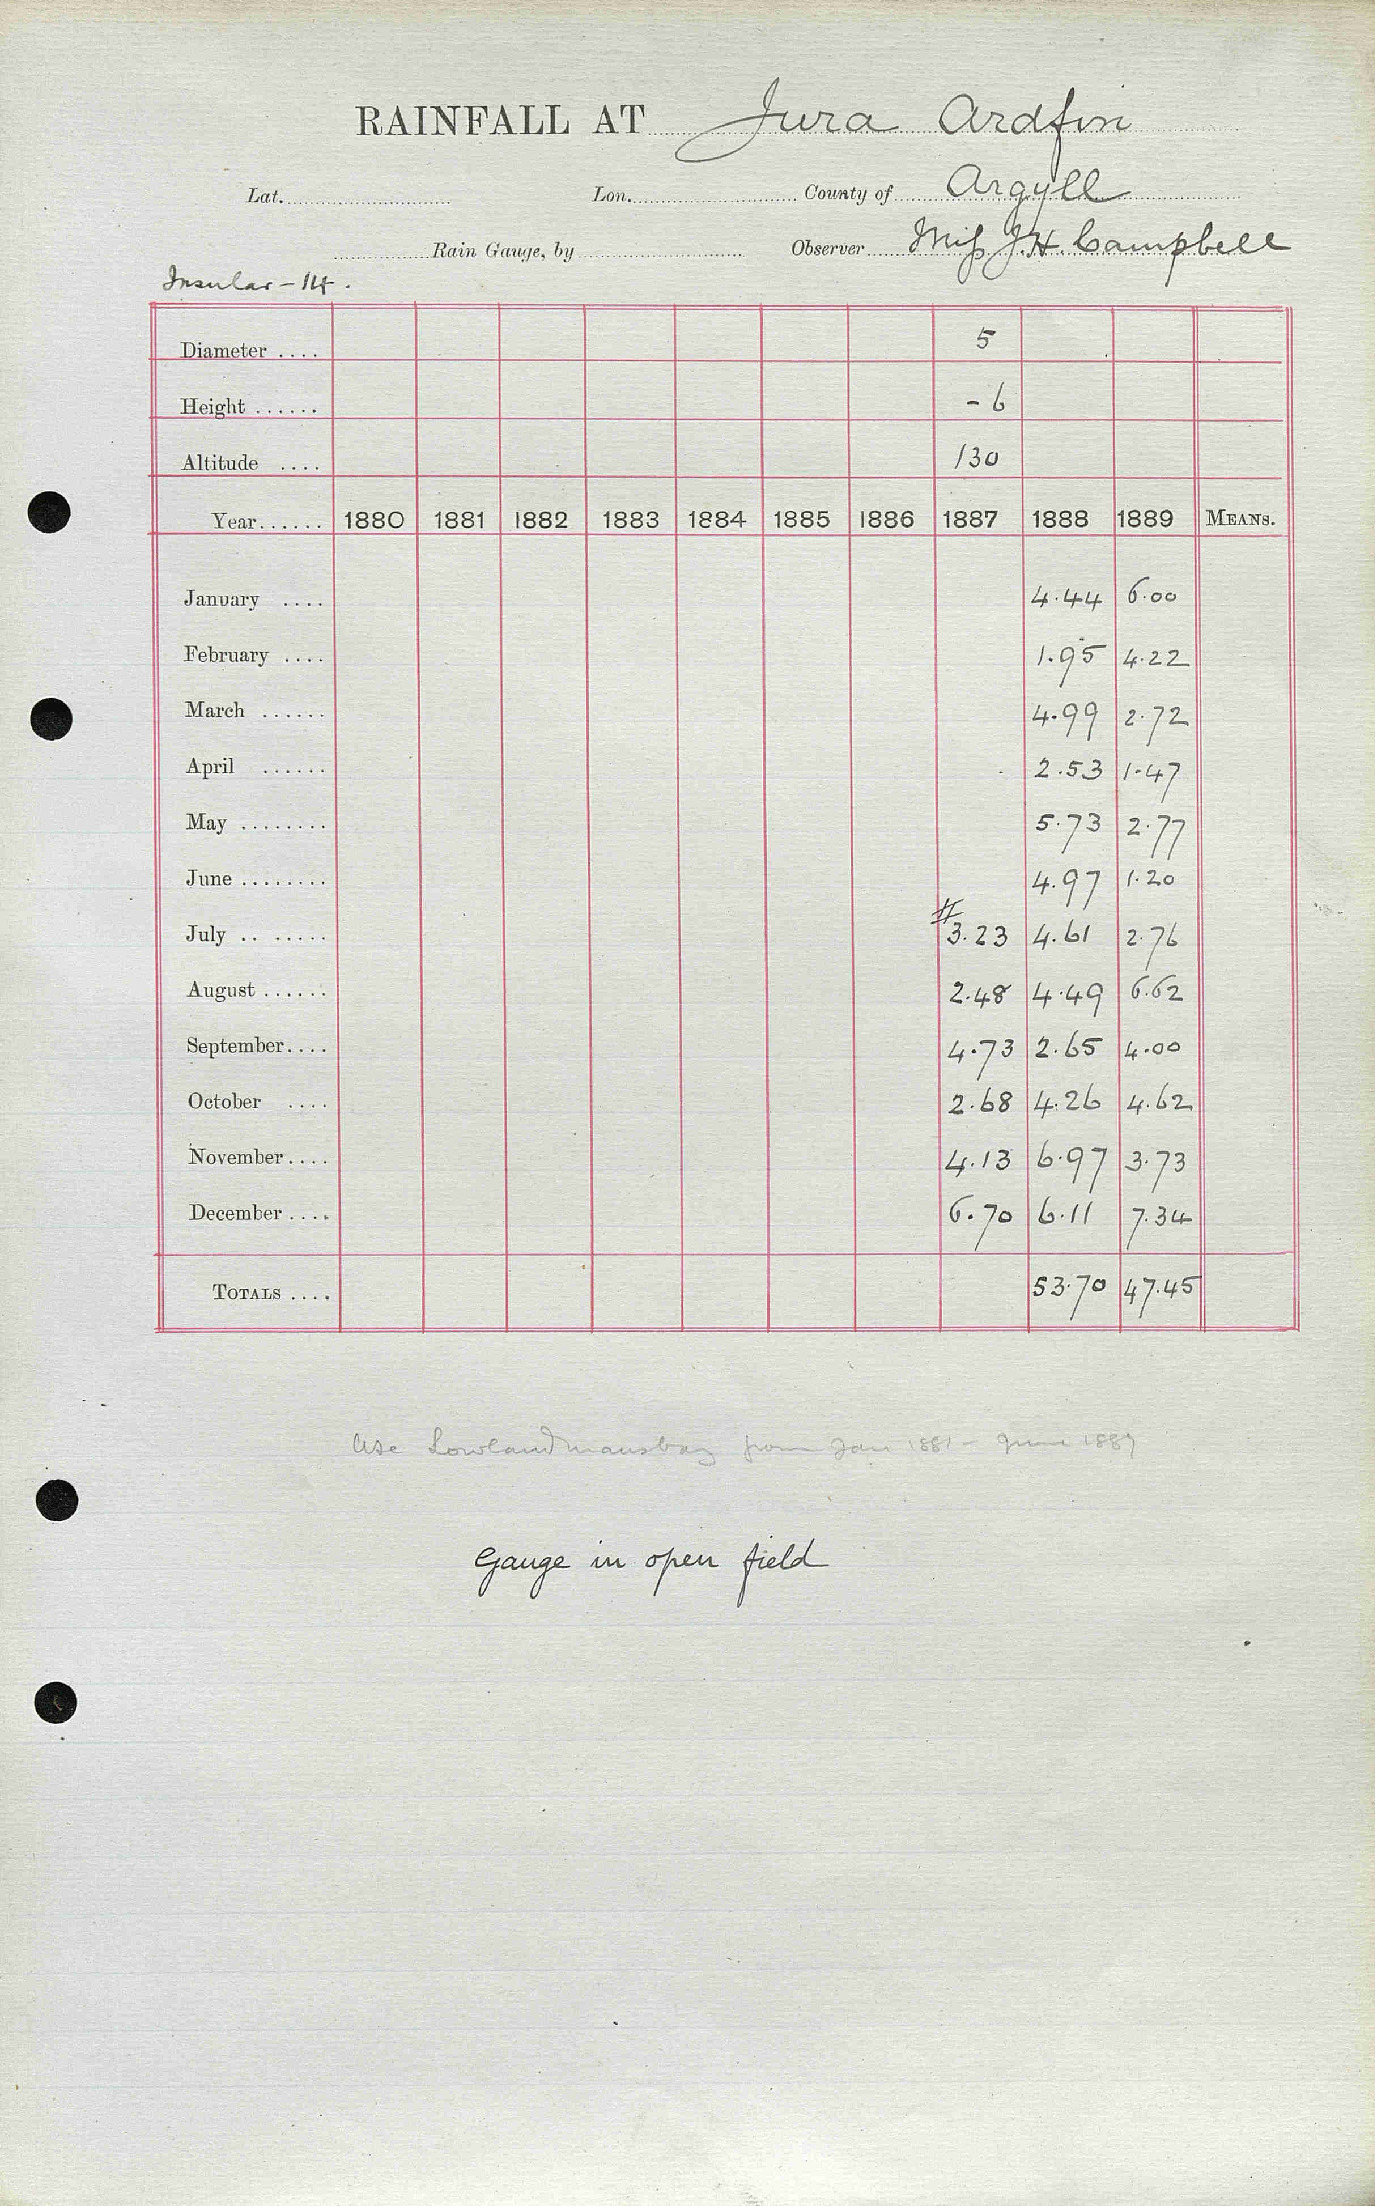 RAINFALL AT Jura Ardfin
Lat. Lon. County of Argyll
Rain Gauge, by Observer Miss J.H. Campbell
Insular - 14.
Diameter .... 5
Height ...... - 6
Altitude .... 130
Year...... 1880 1881 1882 1883 1884 1885 1886 1887 1888 1889 MEANS.
January .... 4.44 6.00
February .... 1.95 4.22
March ...... 4.99 2.72
April ...... 2.53 1.47
May ........ 5.73 2.77
June ........ 4.97 1.20
July .. ..... # 3.23 4.61 2.76
August ...... 2.48 4.49 6.62
September.... 4.73 2.65 4.00
October .... 2.68 4.26 4.62
November.... 4.13 6.97 3.73
December .... 6.70 6.11 7.34
TOTALS .... 53.70 47.45
Use Lowlandmansbay from Jan 1881 - June 1887
Gauge in open field